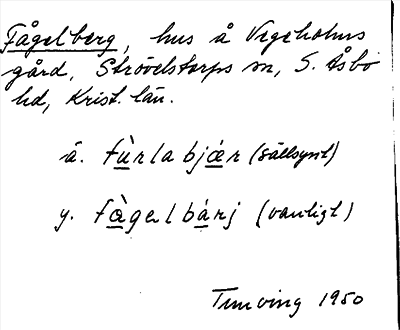 Fågelberg, hus å Vegeholms
gård, Strövelstorps sn, S. Åsbo
hd, Krist. län.
ä. fùrlabjár (sällsynt)
y. fàgelbárj (vanligt)
Tunving 1950